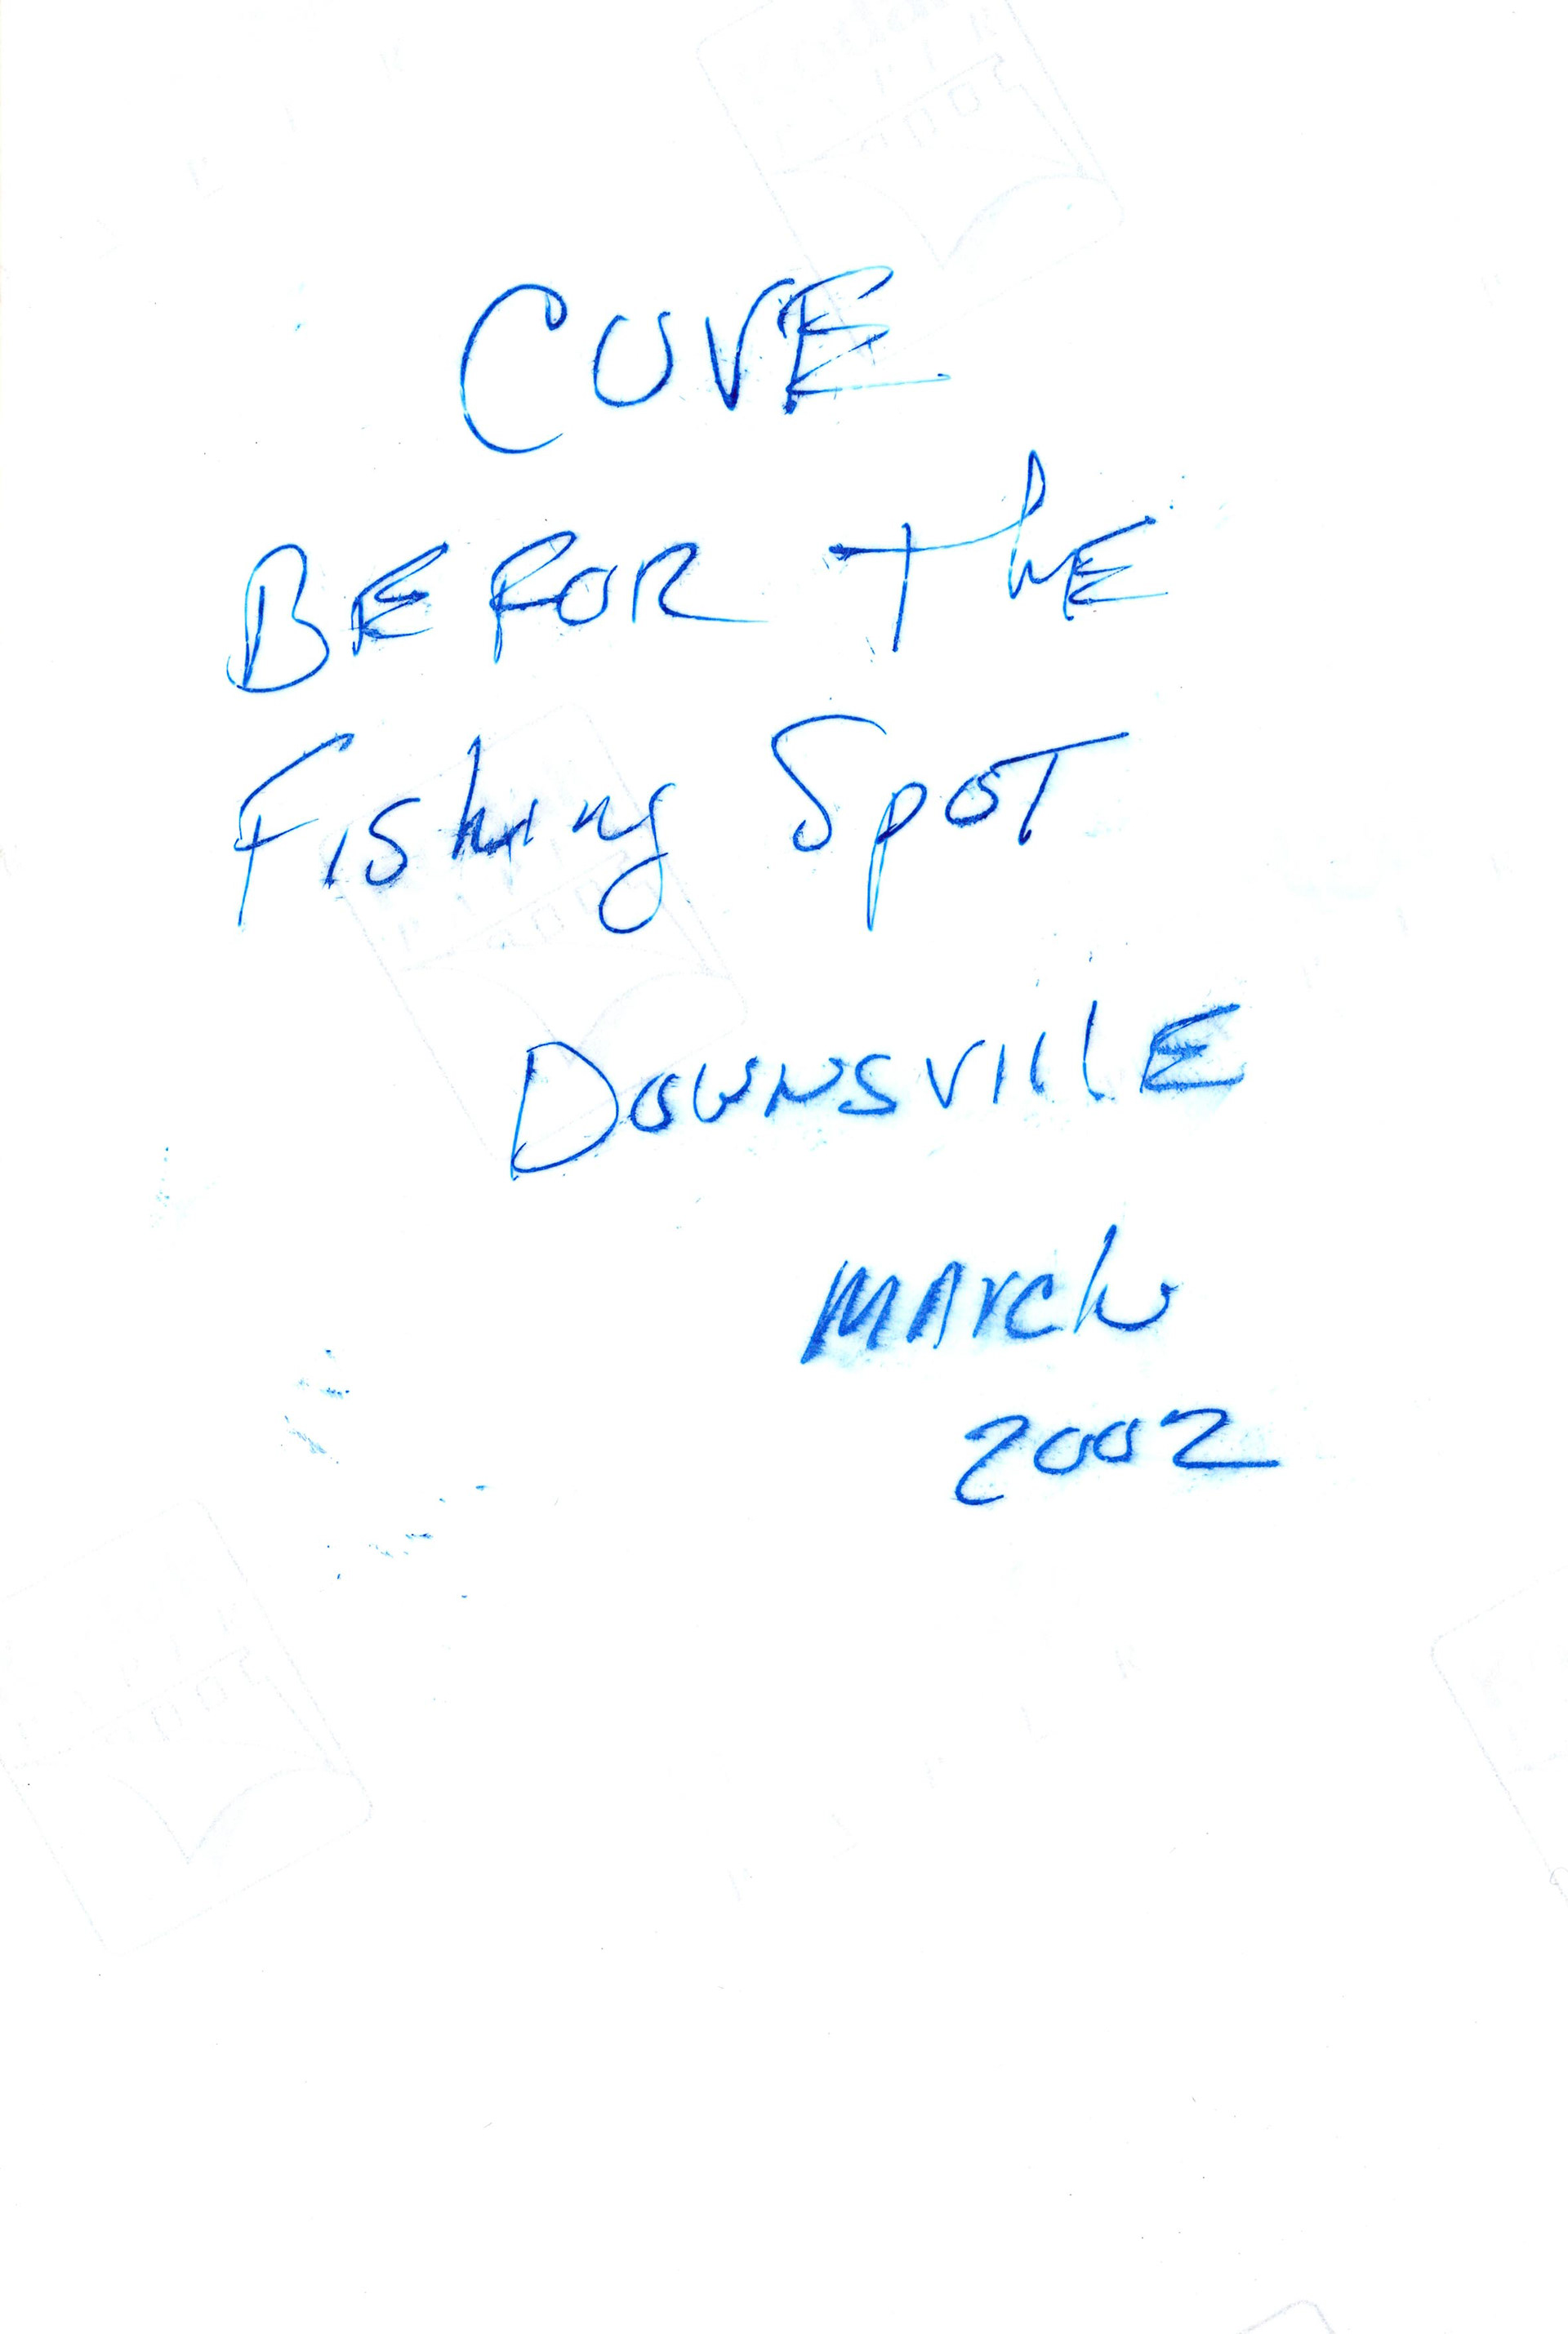 COVE
BEFOR the
Fishing Spot
DOWNSVIllE
MARch
2002